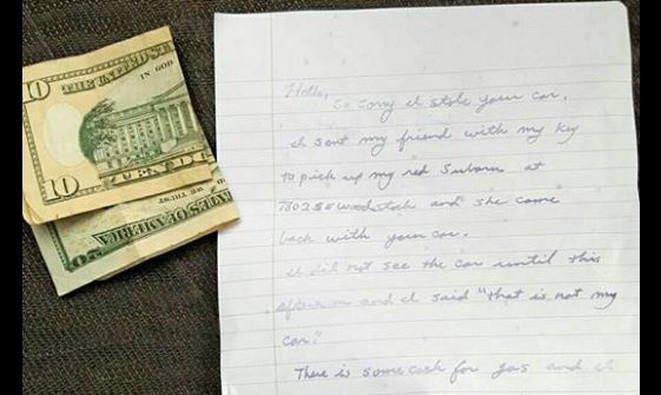 10
THE UNITED ST
IN GOD
10
TEN DO
WE TRUST
ES OF AMERICA
Hello,
So sorry I stole your car.
I sent my friend with my key
to pick up my red Subaru at
7802 SE Woodstock and she came
back with your car.
I did not see the car until this
afternoon and I said "that is not my
car."
There is some cash for gas and I